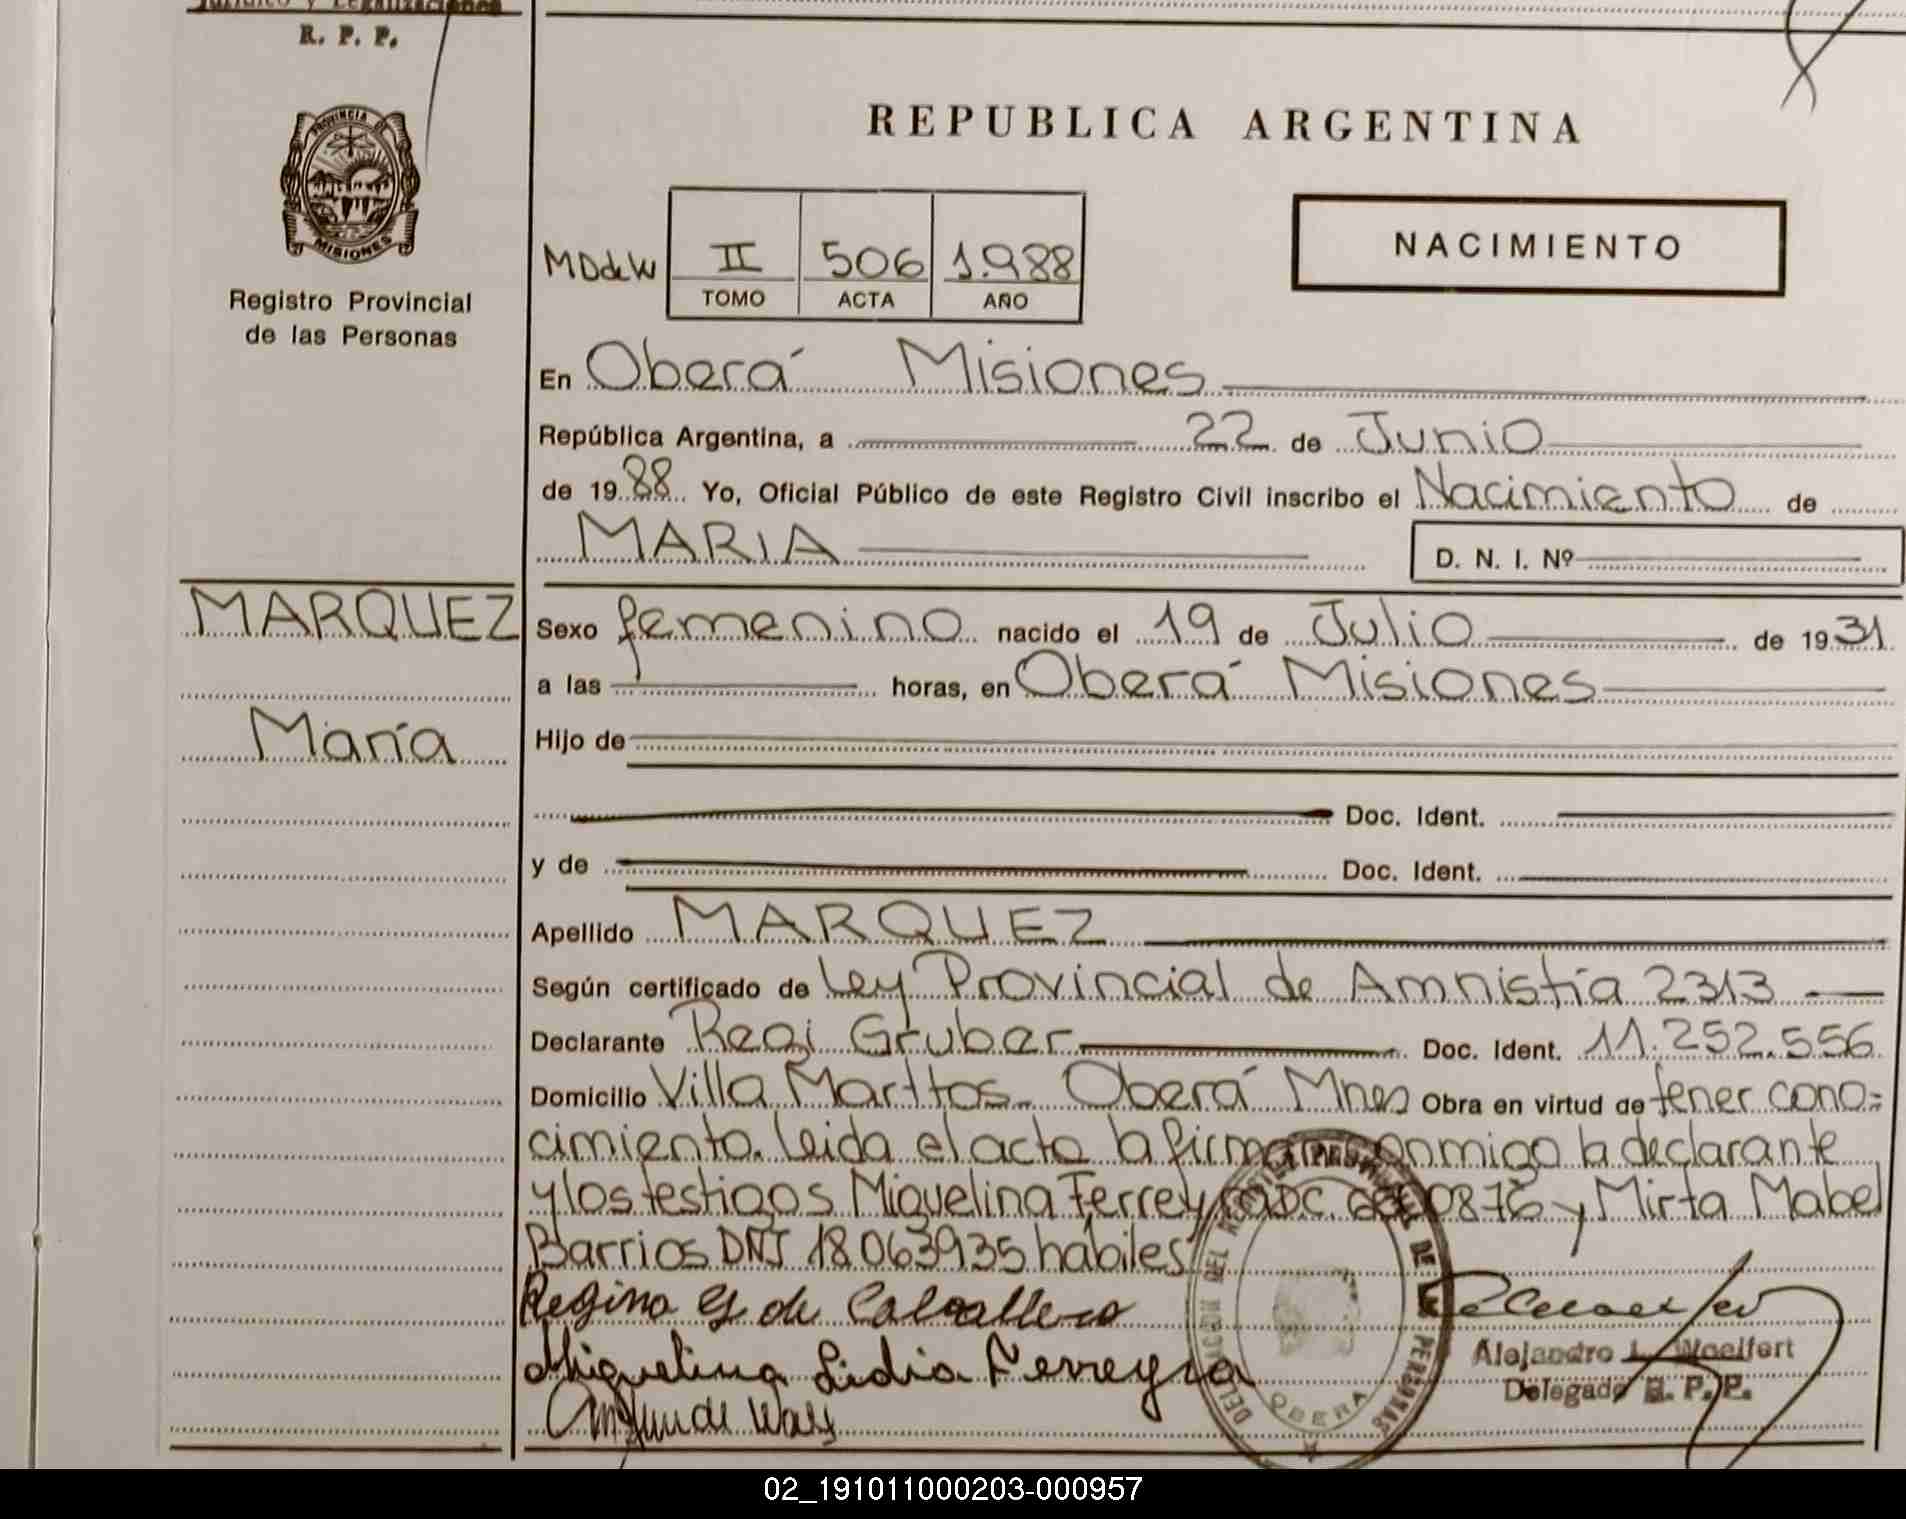 Jurídico y Legalizaciones
R. P. P.
PROVINCIA DE
MISIONES
Registro Provincial
de las Personas
REPUBLICA ARGENTINA
NACIMIENTO
MDdeW II 506 1.988
TOMO ACTA AÑO
En Oberá Misiones
República Argentina, a 22 de Junio
de 19 88 Yo, Oficial Público de este Registro Civil inscribo el Nacimiento de
MARIA D. N. I. Nº
MARQUEZ
María
Sexo femenino nacido el 19 de Julio de 19 31
a las horas, en Oberá Misiones
Hijo de
Doc. Ident.
y de Doc. Ident.
Apellido MARQUEZ
Según certificado de Ley Provincial de Amnistía 2313
Declarante Regi Gruber Doc. Ident. 11.252.556
Domicilio Villa Marttos. Oberá Mnes Obra en virtud de tener cono=
cimiento. Leida el acta la firman conmigo la declarante
y los testigos Miguelina Ferreyra DC. 0876 y Mirta Mabel
Barrios DNI 18.063935 hábiles
Regina G de Caballero
Miguelina Lidia Ferreyra
DELEGACION DEL REGISTRO PROVINCIAL DE LAS PERSONAS
OBERA
Alejandro L. Woelfert
Delegado R. P. P.
02_191011000203-000957